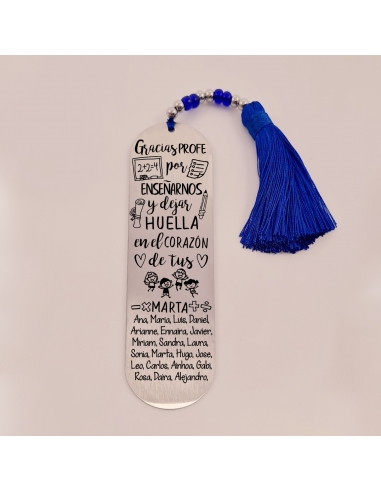 Gracias PROFE
2+2=4 por
ENSEÑARNOS
y dejar
HUELLA
en el CORAZÓN
de tus
-×MARTA+÷
Ana, María, Luis, Daniel,
Arianne, Ennaira, Javier,
Miriam, Sandra, Laura,
Sonia, Marta, Hugo, Jose,
Leo, Carlos, Ainhoa, Gabi,
Rosa, Daira, Alejandro,